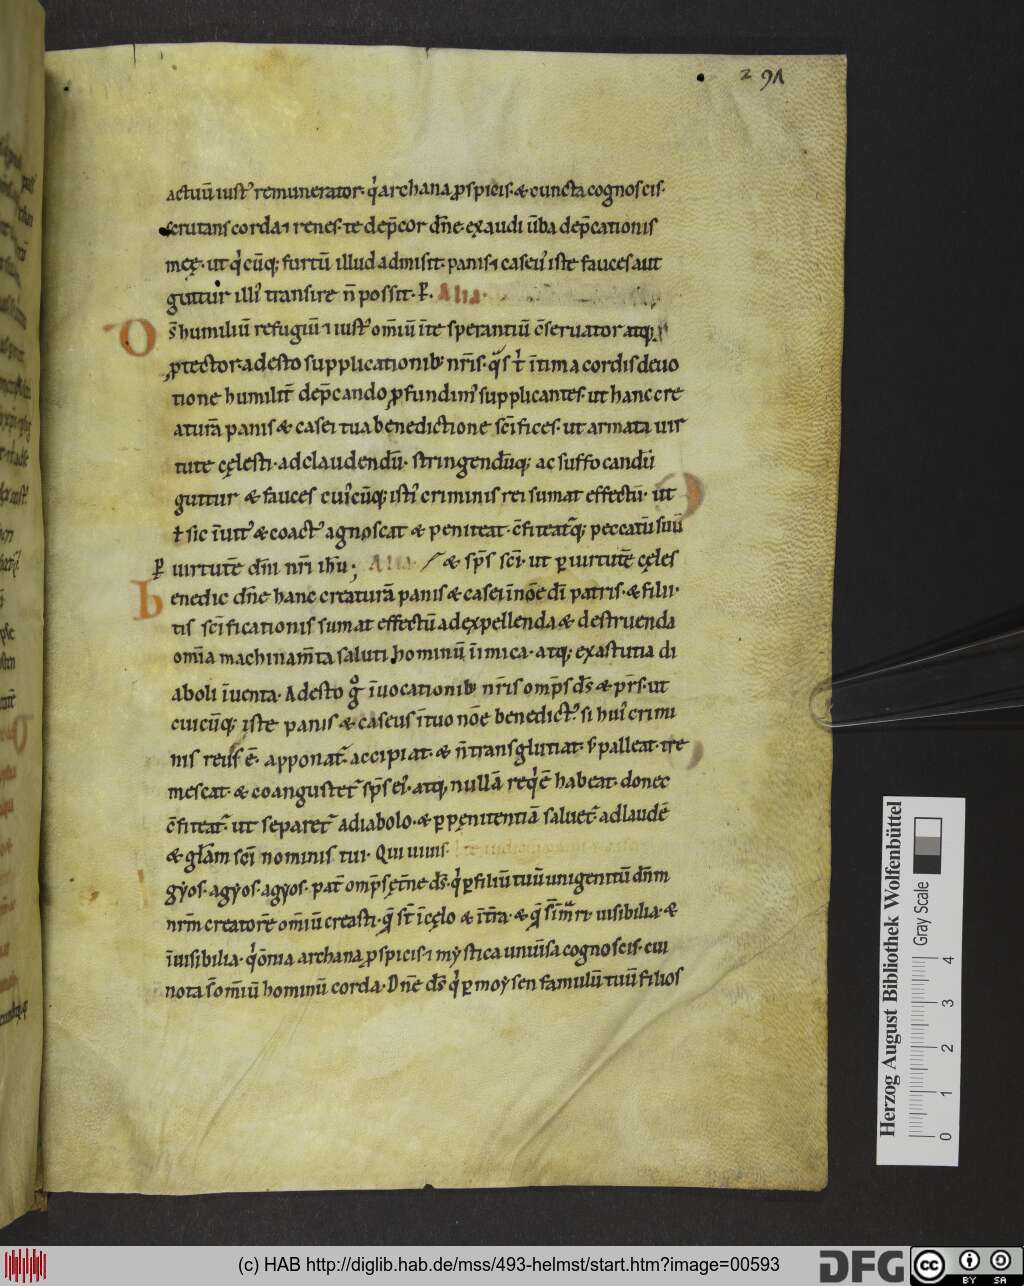 291
actuū iustꝰ remunerator· qͥ archana ꝓspicis· & cuncta cognoscis·
scrutans corda ⁊ renes· te dep̄cor dn̄e· exaudi ūba dep̄cationis
meę· ut qͥcūq; furtū illud admisit· panis ⁊ caseuꝰ iste fauces aut
guttur illiꝰ transire n̄ possit· ꝑ· Alia·
Ds̄ humiliū refugiū ⁊ iustꝰ om̄iū īte sperantiū c̄seruator atq;
ꝓtector· adesto supplicationib; nr̄is· qͣs t̄ intima cordis deuo
tione humilit̄ dep̄cando ꝓfundimꝰ supplicantes· ut hanc cre
aturā panis & casei tua benedictione sc̄ifices· ut armata uir
tute cęlesti· ad claudendū· stringendūq; ac suffocandū
guttur & fauces cuiꝰcūq; istiꝰ criminis rei sumat effectū· ut
t̄ sic īuitꝰ & coactꝰ agnoscat & peniteat· c̄fiteatq; peccatū suū
ꝑ uirtutē dn̄i nr̄i ih̄u; Alia· / & sp̄s sc̄i· ut ꝑ uirtutē cęles
Benedic dn̄e hanc creaturā panis & casei īnōe dī patris· & filii·
tis sc̄ificationis sumat effectū ad expellenda & destruenda
om̄ia machinam̄ta saluti hominū īimica· atq; ex astutia di
aboli īuenta· Adesto gͦ īuocationib; nr̄is om̄ps ds̄ & pr̄s· ut
cuicūq; iste panis & caseus ī tuo nōe benedictꝰ si huiꝰ crimi
nis reus ē· apponat̄· accipiat· & n̄ transglutiat· s; palleat· tre
mescat· & coangustet̄ sp̄s eiꝰ· atq; nullā reqͥē habeat· donec
c̄fiteat̄· ut separet̄ a diabolo· & ꝑ pęnitentiā saluet̄· ad laudē
& glā̄m sc̄i nominis tui· Qui uiuis·
gyos· agyos· agyos· pat̄ om̄ps ęt̄ne ds̄· qͥ ꝑ filiū tuū unigenitū dn̄m
nr̄m creatorē om̄iū creasti· qͣ st̄ ī cęlo & īt̄ra· & qͣ st̄ ī mari· uisibilia· &
īuisibilia· qͥ ōmia archana ꝓspicis· ⁊ mystica uniūsa cognoscis· cui
nota s̄ om̄iū hominū corda· Dn̄e ds̄ qͥ ꝑ moysen famulū tuū filios
Herzog August Bibliothek Wolfenbüttel
Gray Scale
0 1 2 3 4
(c) HAB http://diglib.hab.de/mss/493-helmst/start.htm?image=00593
DFG
cc BY SA